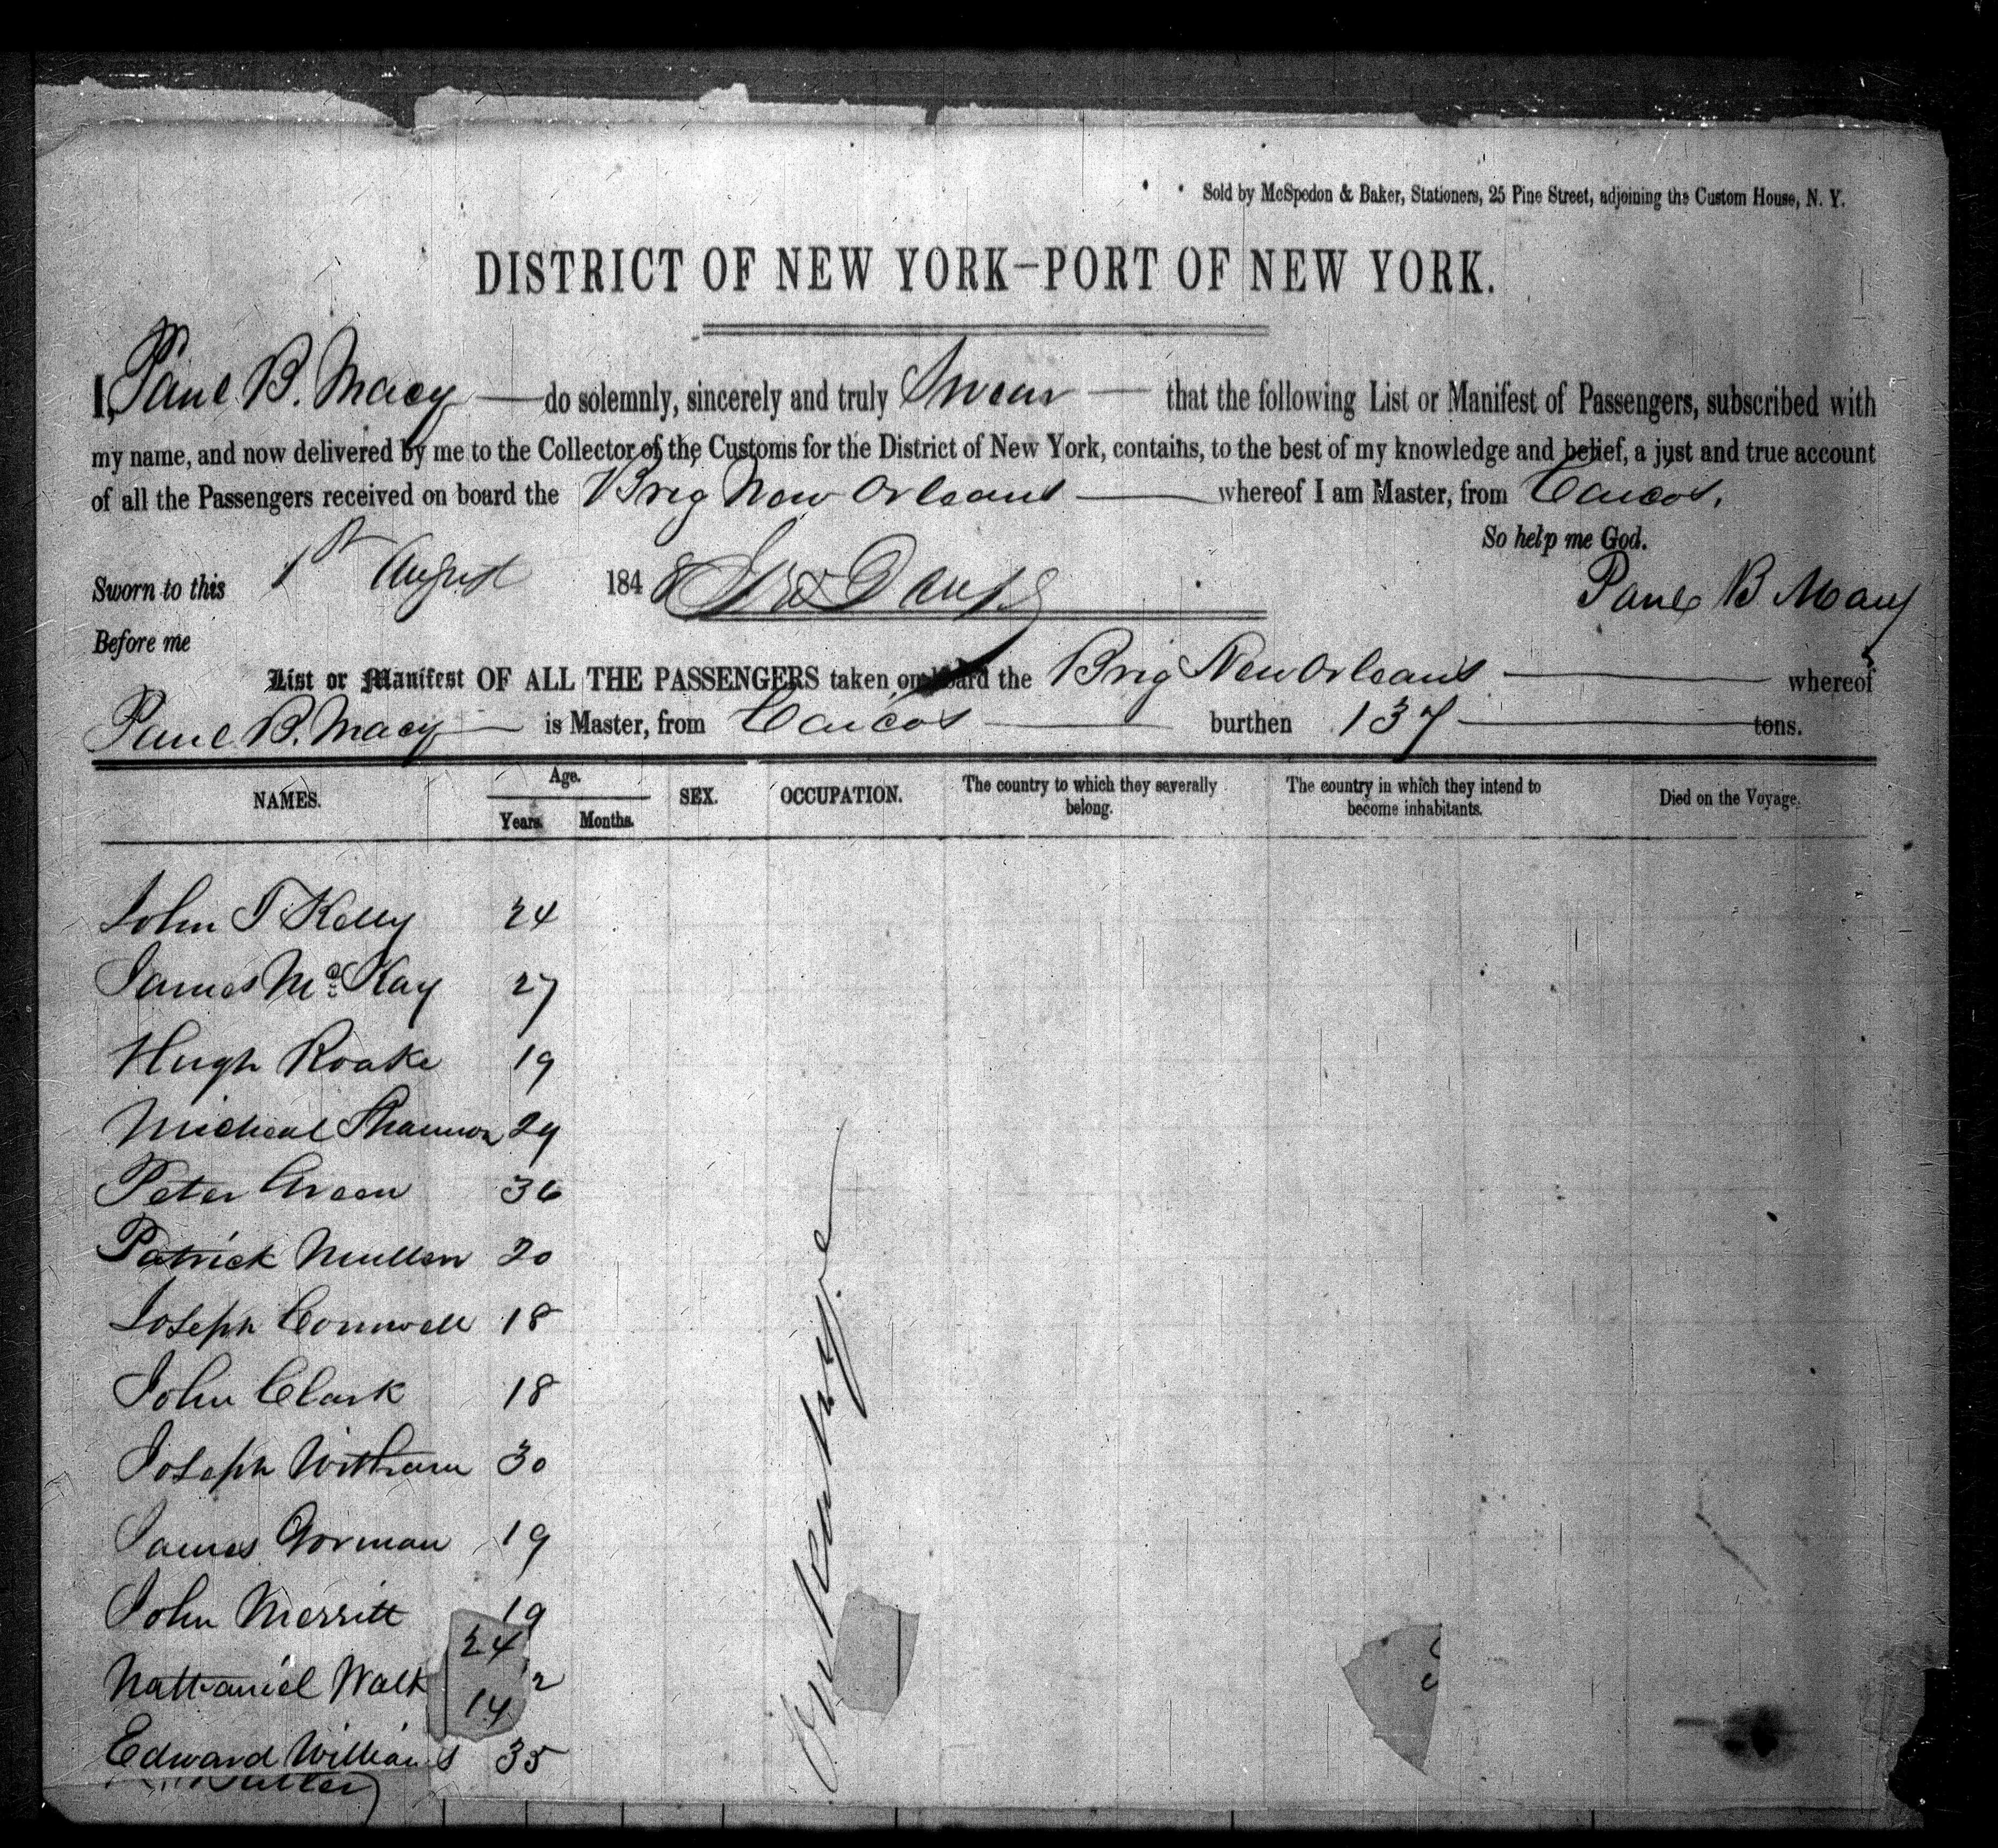 Sold by McSpedon & Baker, Stationers, 25 Pine Street, adjoining the Custom House, N. Y.
DISTRICT OF NEW YORK—PORT OF NEW YORK.
I, Paul B. Macy — do solemnly, sincerely and truly Swear — that the following List or Manifest of Passengers, subscribed with
my name, and now delivered by me to the Collector of the Customs for the District of New York, contains, to the best of my knowledge and belief, a just and true account
of all the Passengers received on board the Brig New Orleans — whereof I am Master, from Caicos.
So help me God.
Sworn to this 1st August 1848
Paul B Macy
Before me
List or Manifest OF ALL THE PASSENGERS taken on board the Brig New Orleans — whereof
Paul B. Macy — is Master, from Caicos — burthen 137 — tons.
NAMES. Age. Years. Months. SEX. OCCUPATION. The country to which they severally belong. The country in which they intend to become inhabitants. Died on the Voyage.
John T Kelly 24
James Mc Kay 27
Hugh Roake 19
Micheal Shannon 29
Peter Green 36
Patrick Mullen 20
Joseph Cornwell 18
John Clark 18
Joseph Witham 30
James Gorman 19
John Merritt 19
24
Nathaniel Walk 2
14
Edward Williams 35
Butler